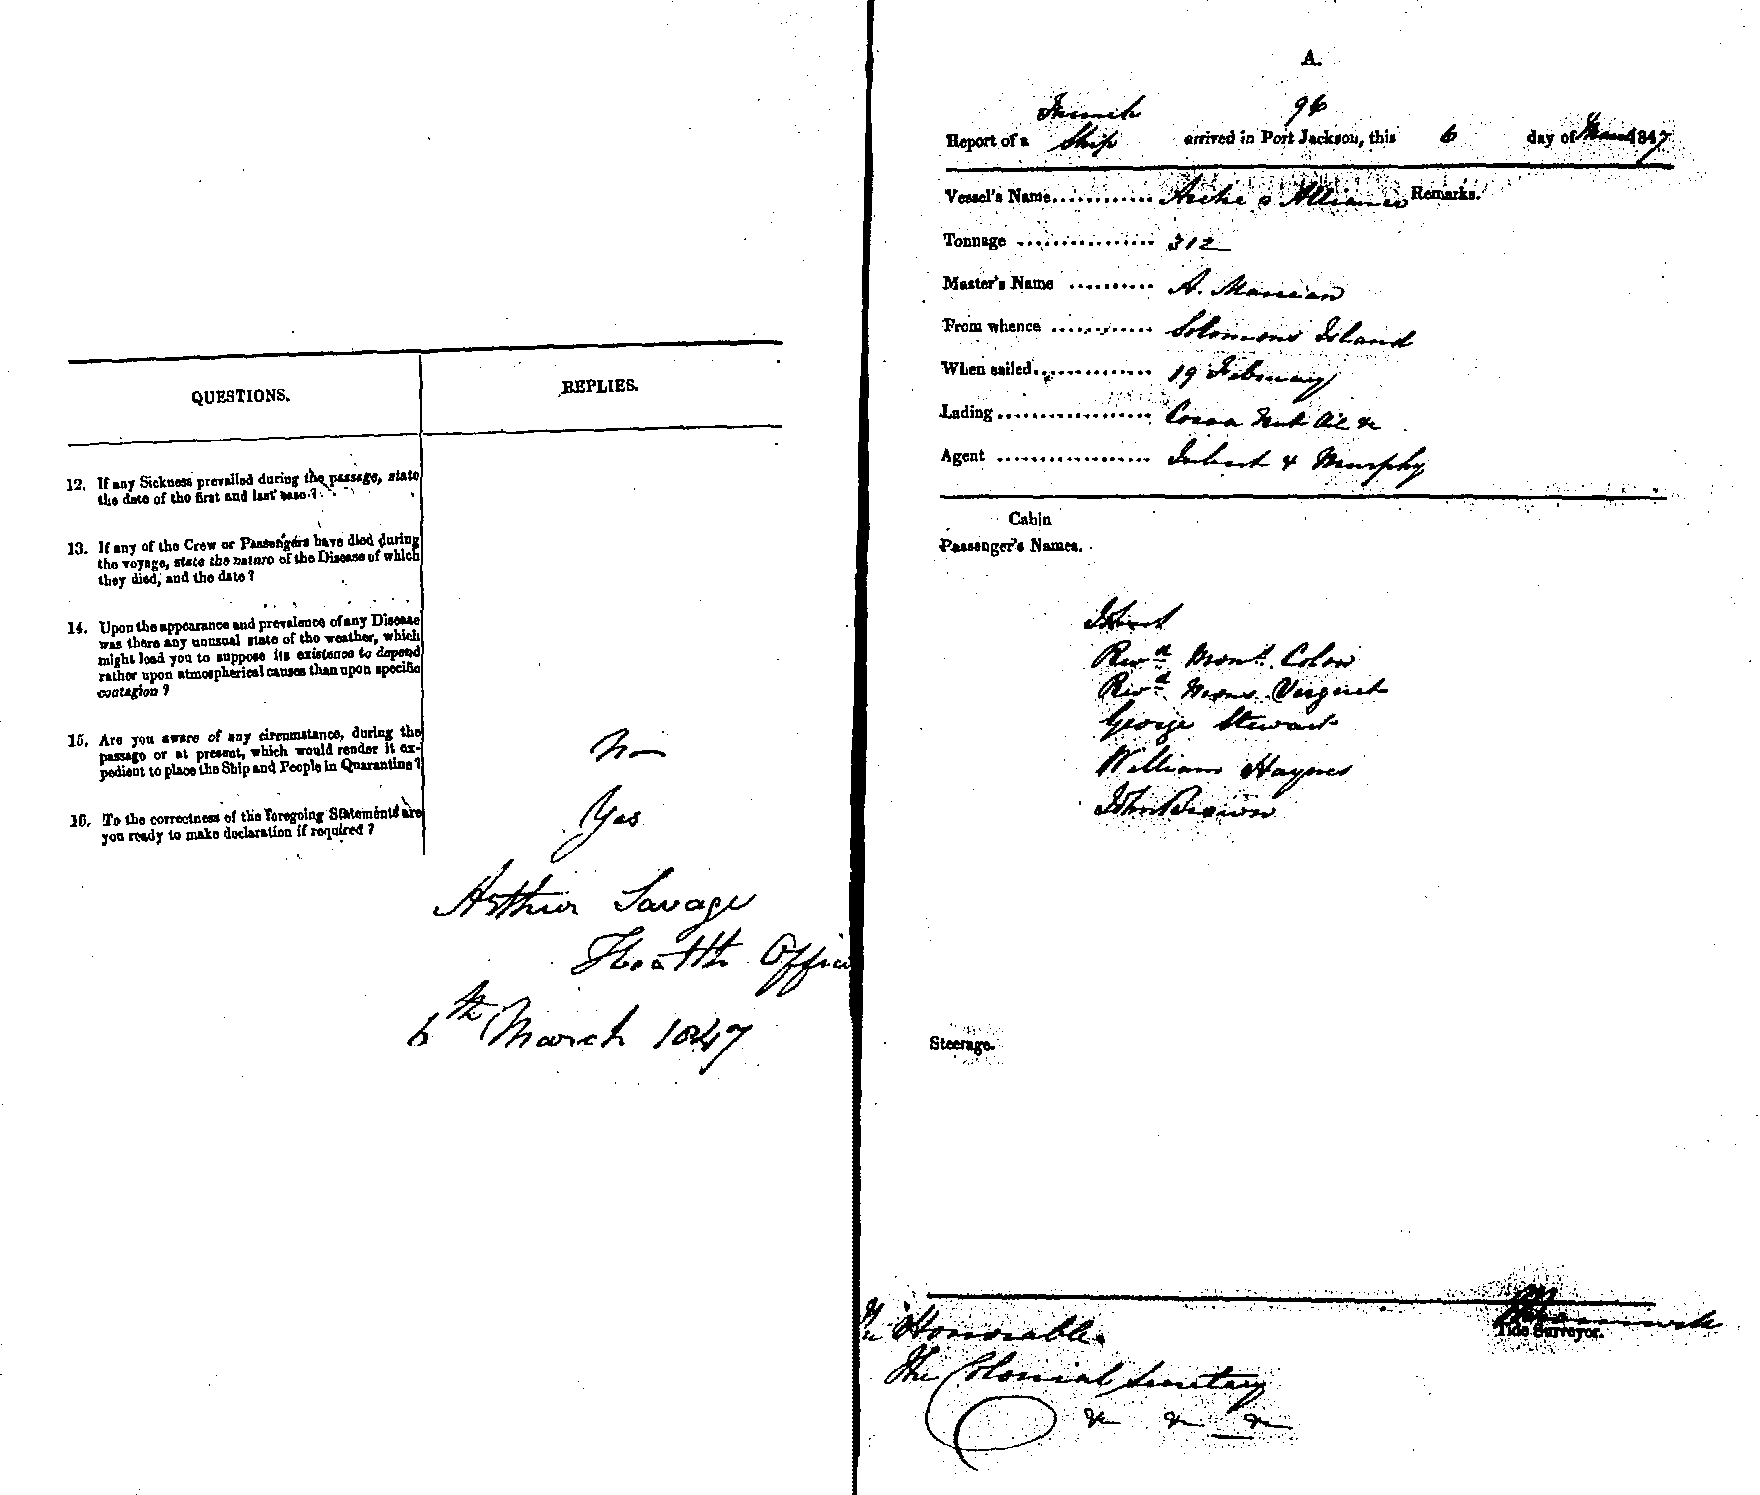 QUESTIONS.
REPLIES.
12. If any Sickness prevailed during the passage, state
the date of the first and last case?
13. If any of the Crew or Passengers have died during
the voyage, state the nature of the Disease of which
they died, and the date?
14. Upon the appearance and prevalence of any Disease
was there any unusual state of the weather, which
might lead you to suppose its existence to depend
rather upon atmospherical causes than upon specific
contagion?
15. Are you aware of any circumstance, during the
passage or at present, which would render it ex-
pedient to place the Ship and People in Quarantine?
No
16. To the correctness of the foregoing Statements are
you ready to make declaration if required?
Yes
Arthur Savage
Health Office
6th March 1847
A.
French
96
Report of a Ship arrived in Port Jackson, this 6 day of March 1847
Vessel's Name............ Arche o Alliance Remarks.
Tonnage ................ 312
Master's Name .......... A.
From whence ............ Solomons Island
When sailed.............. 19 February
Lading.................. Cocoa Nut Oil &c
Agent .................. & Murphy
Cabin
Passenger's Names.
Revd Monsr Colon
Revd Mons Verguet
George Stewart
William Haynes
John Brown
Steerage.
Tide Surveyor.
The Honorable
The Colonial Secretary
&c &c &c